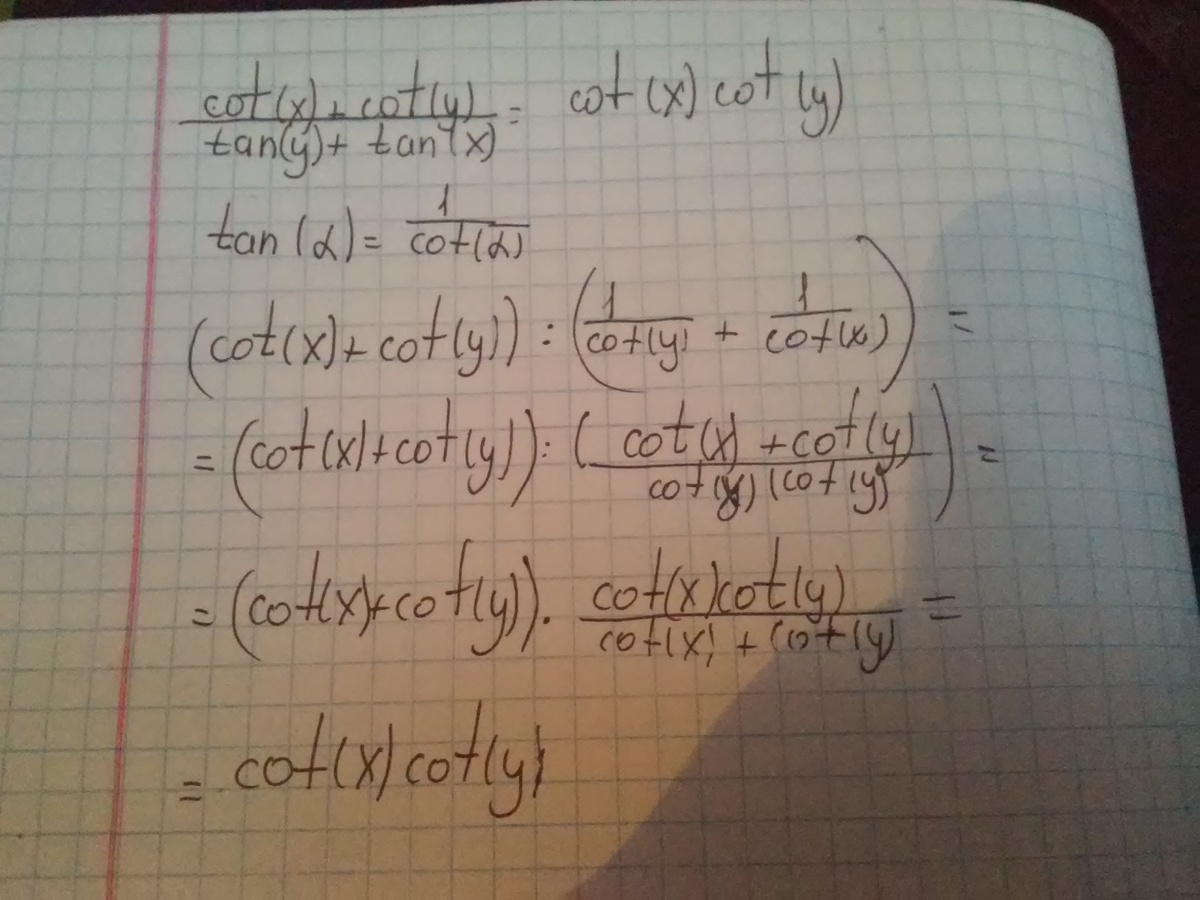 cot(x)+cot(y)/tan(y)+tan(x) = cot(x)cot(y)
tan(α)= 1/cot(α)
(cot(x)+cot(y)) : (1/cot(y) + 1/cot(x)) =
= (cot(x)+cot(y)) : (cot(x)+cot(y)/cot(x)(cot(y)) =
= (cot(x)+cot(y)) · cot(x)cot(y)/cot(x)+cot(y) =
= cot(x)cot(y)